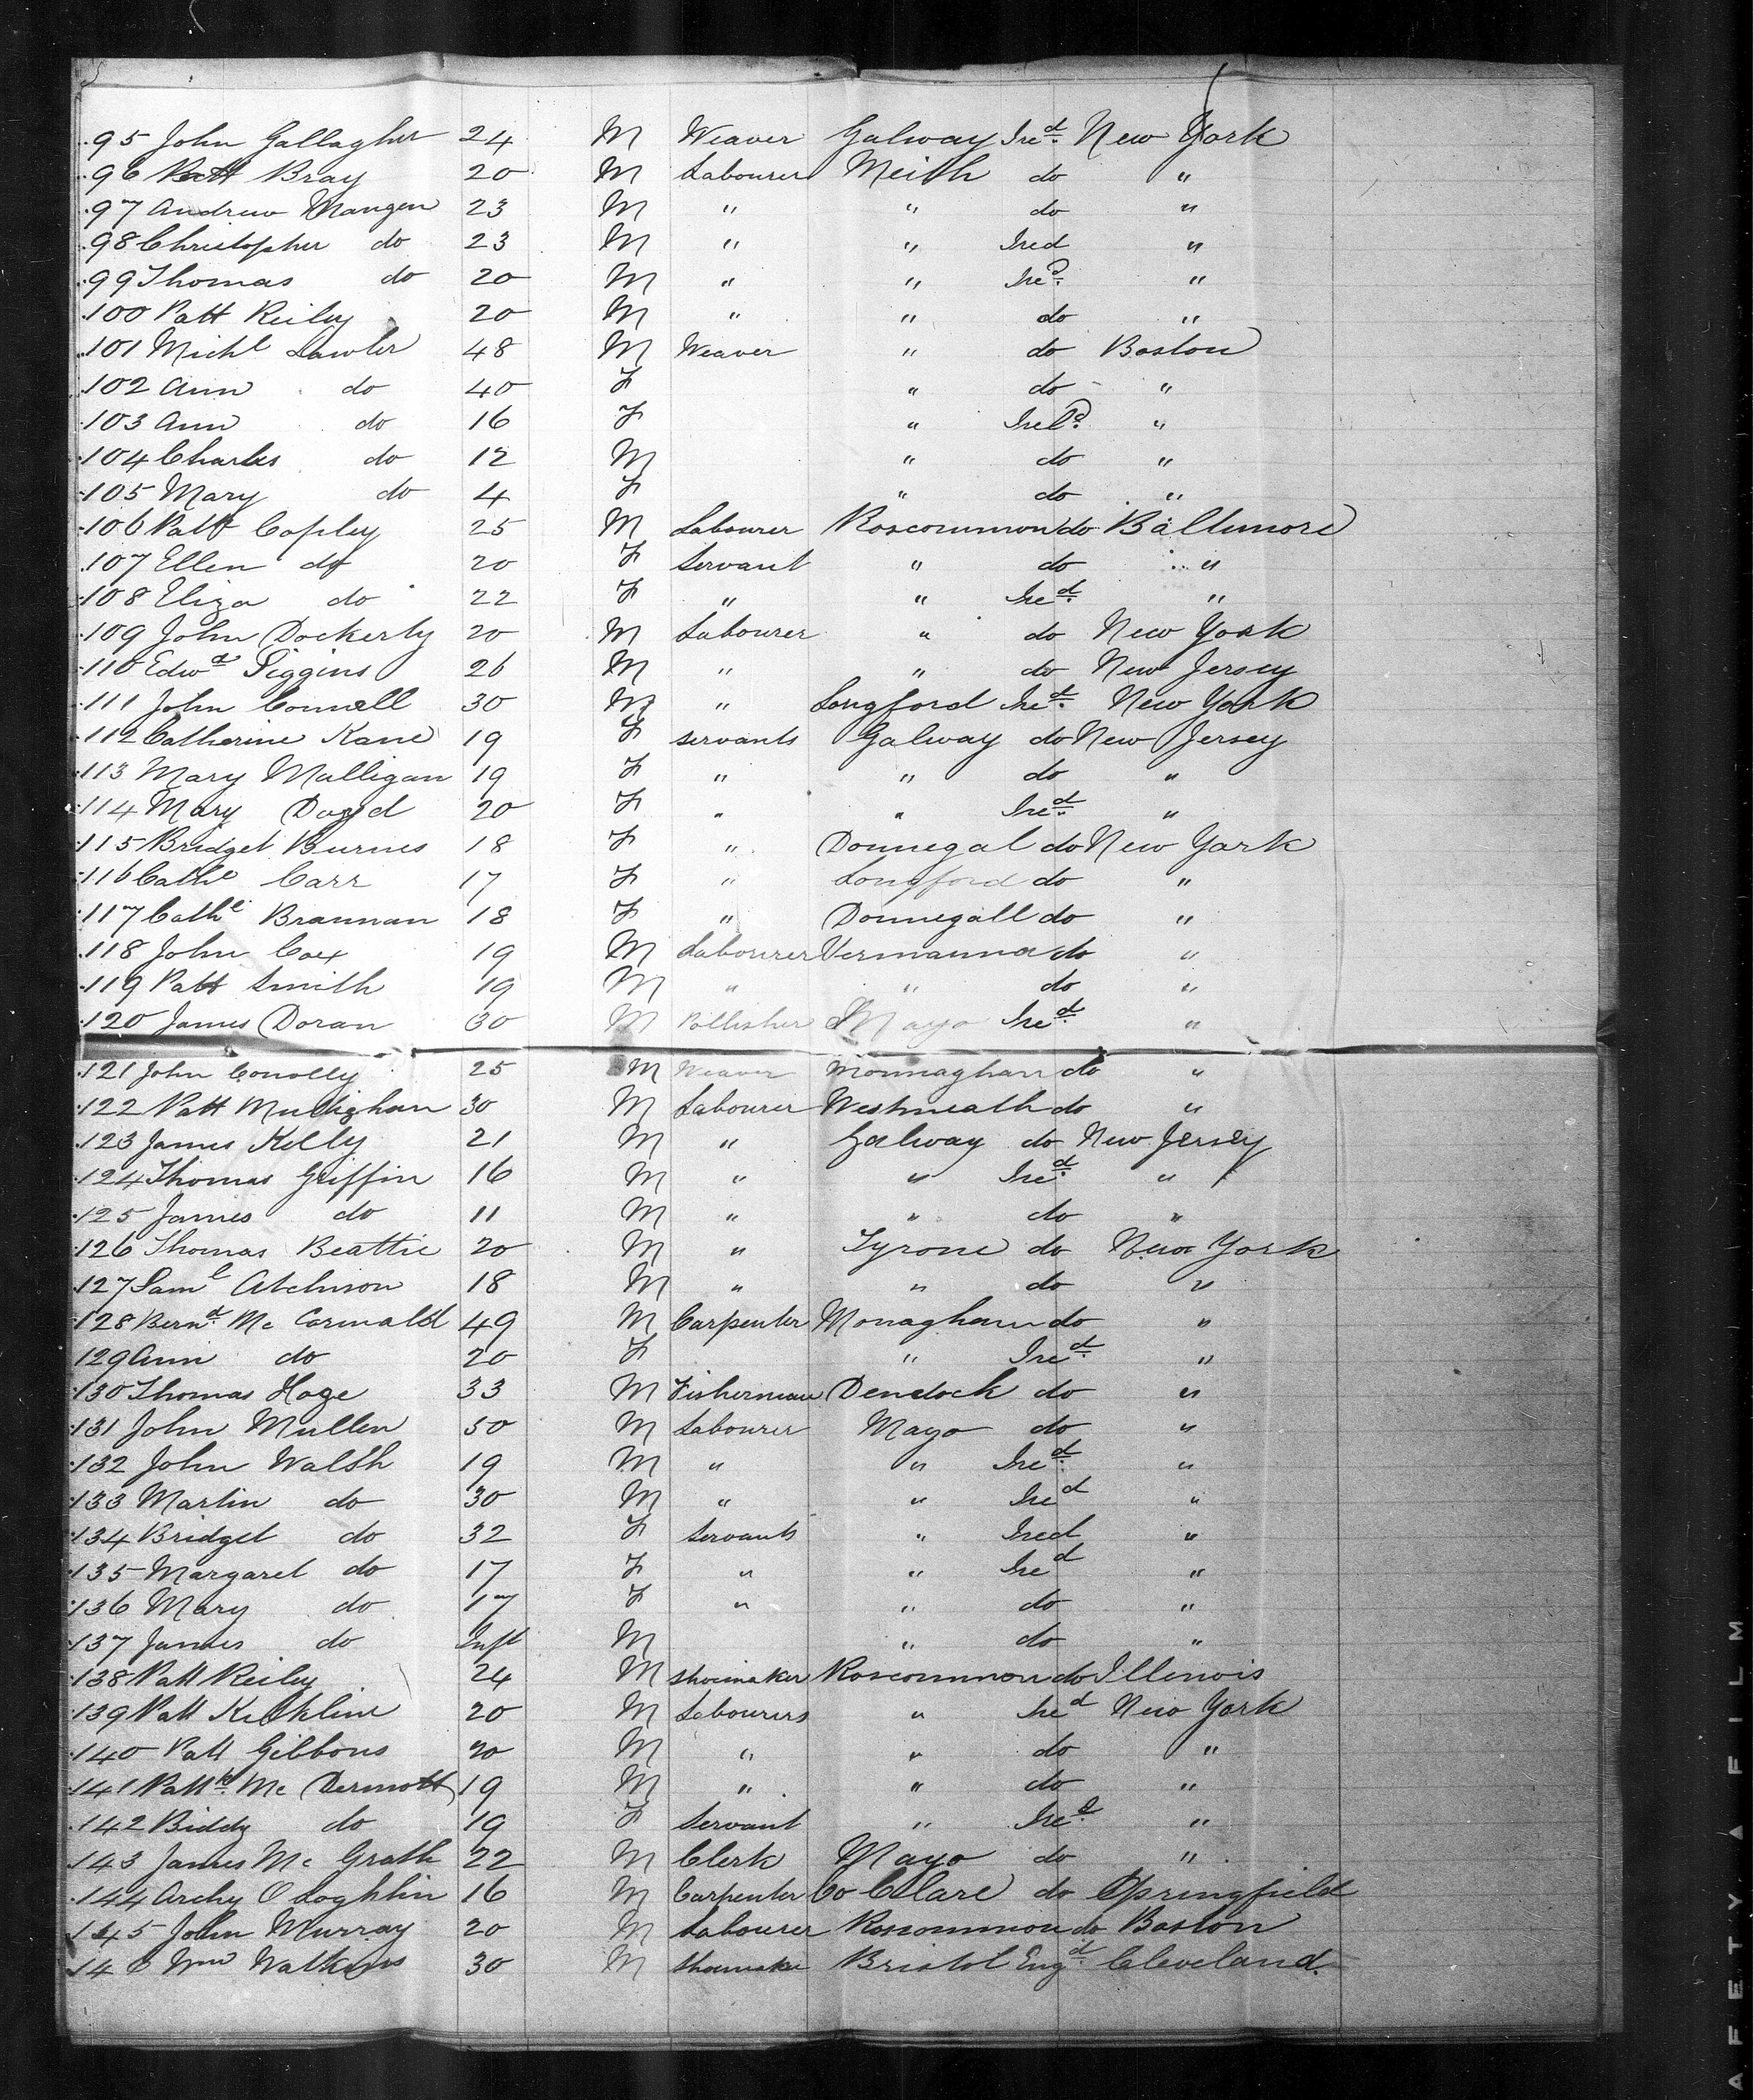 95 John Gallagher 24 M Weaver Galway Ired New York
96 Patt Bray 20 M Labourer Meith do "
97 Andrew Mangen 23 M " " do "
98 Christopher do 23 M " " Ired "
99 Thomas do 20 M " " Ired "
100 Patt Reiley 20 M " " do "
101 Michl Lawler 48 M Weaver " do Boston
102 Ann do 40 F " do "
103 Ann do 16 F " Ireld "
104 Charles do 12 M " do "
105 Mary do 4 F " do "
106 Patt Copley 25 M Labourer Roscommon do Baltimore
107 Ellen do 20 F Servant " do "
108 Eliza do 22 F " " Ired "
109 John Dockerty 20 M Labourer " do New York
110 Edwd Siggins 26 M " " do New Jersey
111 John Connell 30 M " Longford Ired New York
112 Catherine Kane 19 F Servants Galway do New Jersey
113 Mary Mulligan 19 F " " do "
114 Mary 20 F " " Ired "
115 Bridget Burnes 18 F " Donnegal do New York
116 Cathe Carr 17 F " Longford do "
117 Cathe Brannan 18 F " Donnegall do "
118 John Cox 19 M Labourer Vermanna do "
119 Patt Smith 19 M " " do "
120 James Doran 30 M Pollisher Mayo Ired "
121 John Conolly 25 M Weaver Monnaghan do "
122 Patt Mullighan 30 M Labourer Westmeath do "
123 James Kelly 21 M " Galway do New Jersey
124 Thomas Griffin 16 M " " Ired "
125 James do 11 M " " do "
126 Thomas Beattie 20 M " Tyrone do New York
127 Saml Atchison 18 M " " do "
128 Bernd Mc 49 M Carpenter Monaghan do "
129 Ann do 20 F " Ired "
130 Thomas Hoge 33 M Fisherman Dendock do "
131 John Mullen 50 M Labourer Mayo do "
132 John Walsh 19 M " " Ired "
133 Martin do 30 M " " Ired "
134 Bridget do 32 F Servants " Ired "
135 Margaret do 17 F " " Ired "
136 Mary do 17 F " " do "
137 James do Inft M " do "
138 Patt Reiley 24 M Shoemaker Roscommon do Illinois
139 Patt 20 M Labourers " Ired New York
140 Patt Gibbons 20 M " " do "
141 Pattk Mc Dermott 19 M " " do "
142 Biddy do 19 F Servant " Ired "
143 James Mc Grath 22 M Clerk Mayo do "
144 Archy O Loghlin 16 M Carpenter Co Clare do Springfield
145 John Murray 20 M Labourer Roscommon do Boston
146 Wm Watkins 30 M Shoemaker Bristol Engd Cleveland
AFETY FILM